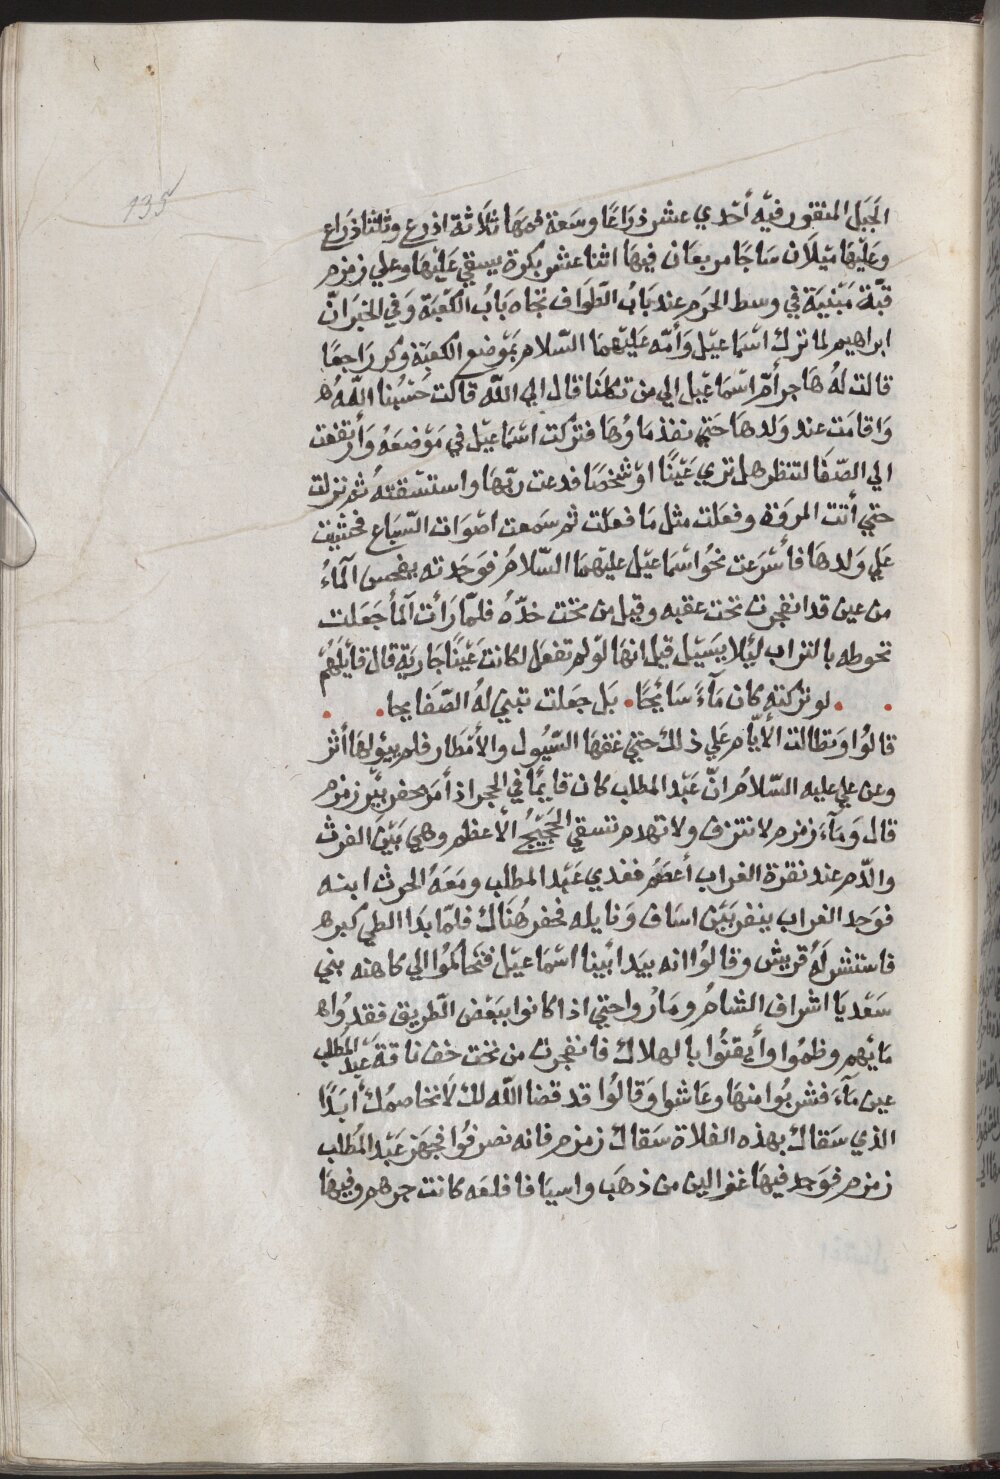 135
الجبل المنقور فيه أحدي عشر ذراعًا وسعة فمها ثلاثة اذرع وثلثا ذراع
وعليها ميلان ساجا مربعان فيها اثنا عشر بكرة يسقي عليها وعلي زمزم
قبّة مبنية في وسط الحرم عند باب الطواف تجاه باب الكعبة وفي الخبر انّ
ابراهيم لما ترك اسماعيل وأمّه عليهما السّلام بموضع الكعبة وكر راجعا
قالت له هاجر أمّ اسماعيل الي من تكلنا قال الي الله قالت حسبنا الله
واقامت عند ولدها حتي نفذ ماوها فتركت اسماعيل في موضعه وارتفعت
الي الصّفا لتنظر هل تري عينًا او شخصًا فدعت ربّها واستسقته ثم نزلت
حتي أتت المروة وفعلت مثل ما فعلت ثم سمعت اصوات السّباع فخشيت
علي ولدها فأسرعت نحو اسماعيل عليهما السّلام فوجدته يفحص المآء
من عين قد انفجرت تحت عقبه وقيل من تحت خدّه فلمّا رأت المآ جعلت
تحوطه بالتراب ليلا يسيل قيل انها لو لم تفعل لكانت عينًا جارية قال قايلهم
لو تركته كان مآءً سايحًا بل جعلت تبني له الصّفايحا
قالوا وتطالت الأيّام علي ذلك حتي عفها السّيول والأمطار فلم يبق لها أثر
وعن علي عليه السّلام انّ عبد المطلب كان قايمًا في الحجر اذ أمر بحفر بير زمزم
قال ومآء زمزم لا تنزف ولا تهدم تسقي الحجيج الأعظم وهي بين الفرث
والدّم عند نقرة الغراب أعصم فغدي عبد المطلب ومعه الحرث ابنه
فوجد الغراب ينقر بين اساف ونايله فحفر هناك فلمّا بدا الطي كبر
فاستشر له قريش وقالوا انه بير أبينا اسماعيل فتحاكموا الي كاهنه بني
سعد يا اشراف الشام وماروا حتي اذا كانوا ببعض الطريق فقدوا
مايهم وظموا وأيقنوا بالهلاك فانفجرت من تحت خف ناقة عبد المطلب
عين مآء فشربوا منها وعاشوا وقالوا قد قضا الله لك لا نخاصمك أبدًا
الذي سقاك بهذه الفلاة سقاك زمزم فانه نصرفوا فجهز عبد المطلب
زمزم فوجد فيها غزالين من ذهب واسيافا قلعه كانت جرهم وفيها